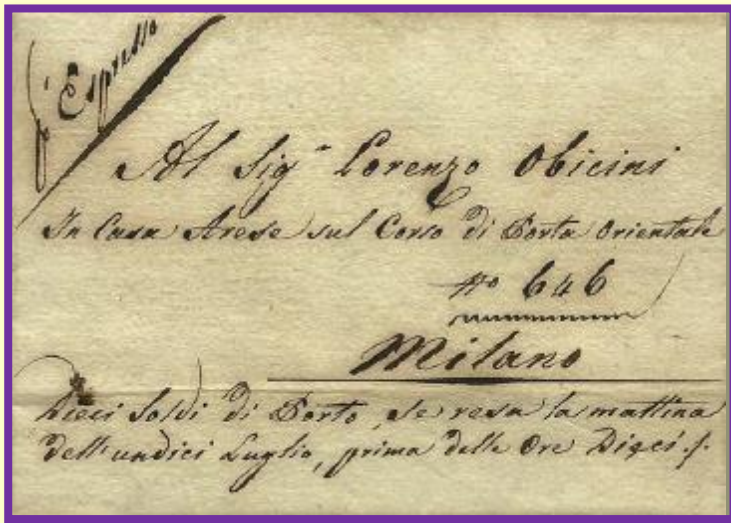 p. Espresso
Al Sig.r Lorenzo Obicini
In Casa Arese sul Corso di Porta Orientale
No 646
Milano
Dieci Soldi di Porto, se resa la mattina
dell'undici Luglio, prima delle Ore Dieci ./.